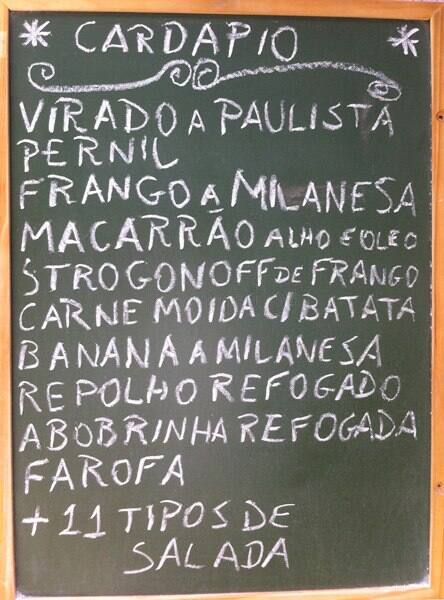 * CARDAPIO *
VIRADO A PAULISTA
PERNIL
FRANGO A MILANESA
MACARRÃO ALHO E OLEO
STROGONOFF DE FRANGO
CARNE MOIDA C/ BATATA
BANANA A MILANESA
REPOLHO REFOGADO
ABOBRINHA REFOGADA
FAROFA
+ 11 TIPOS DE
SALADA